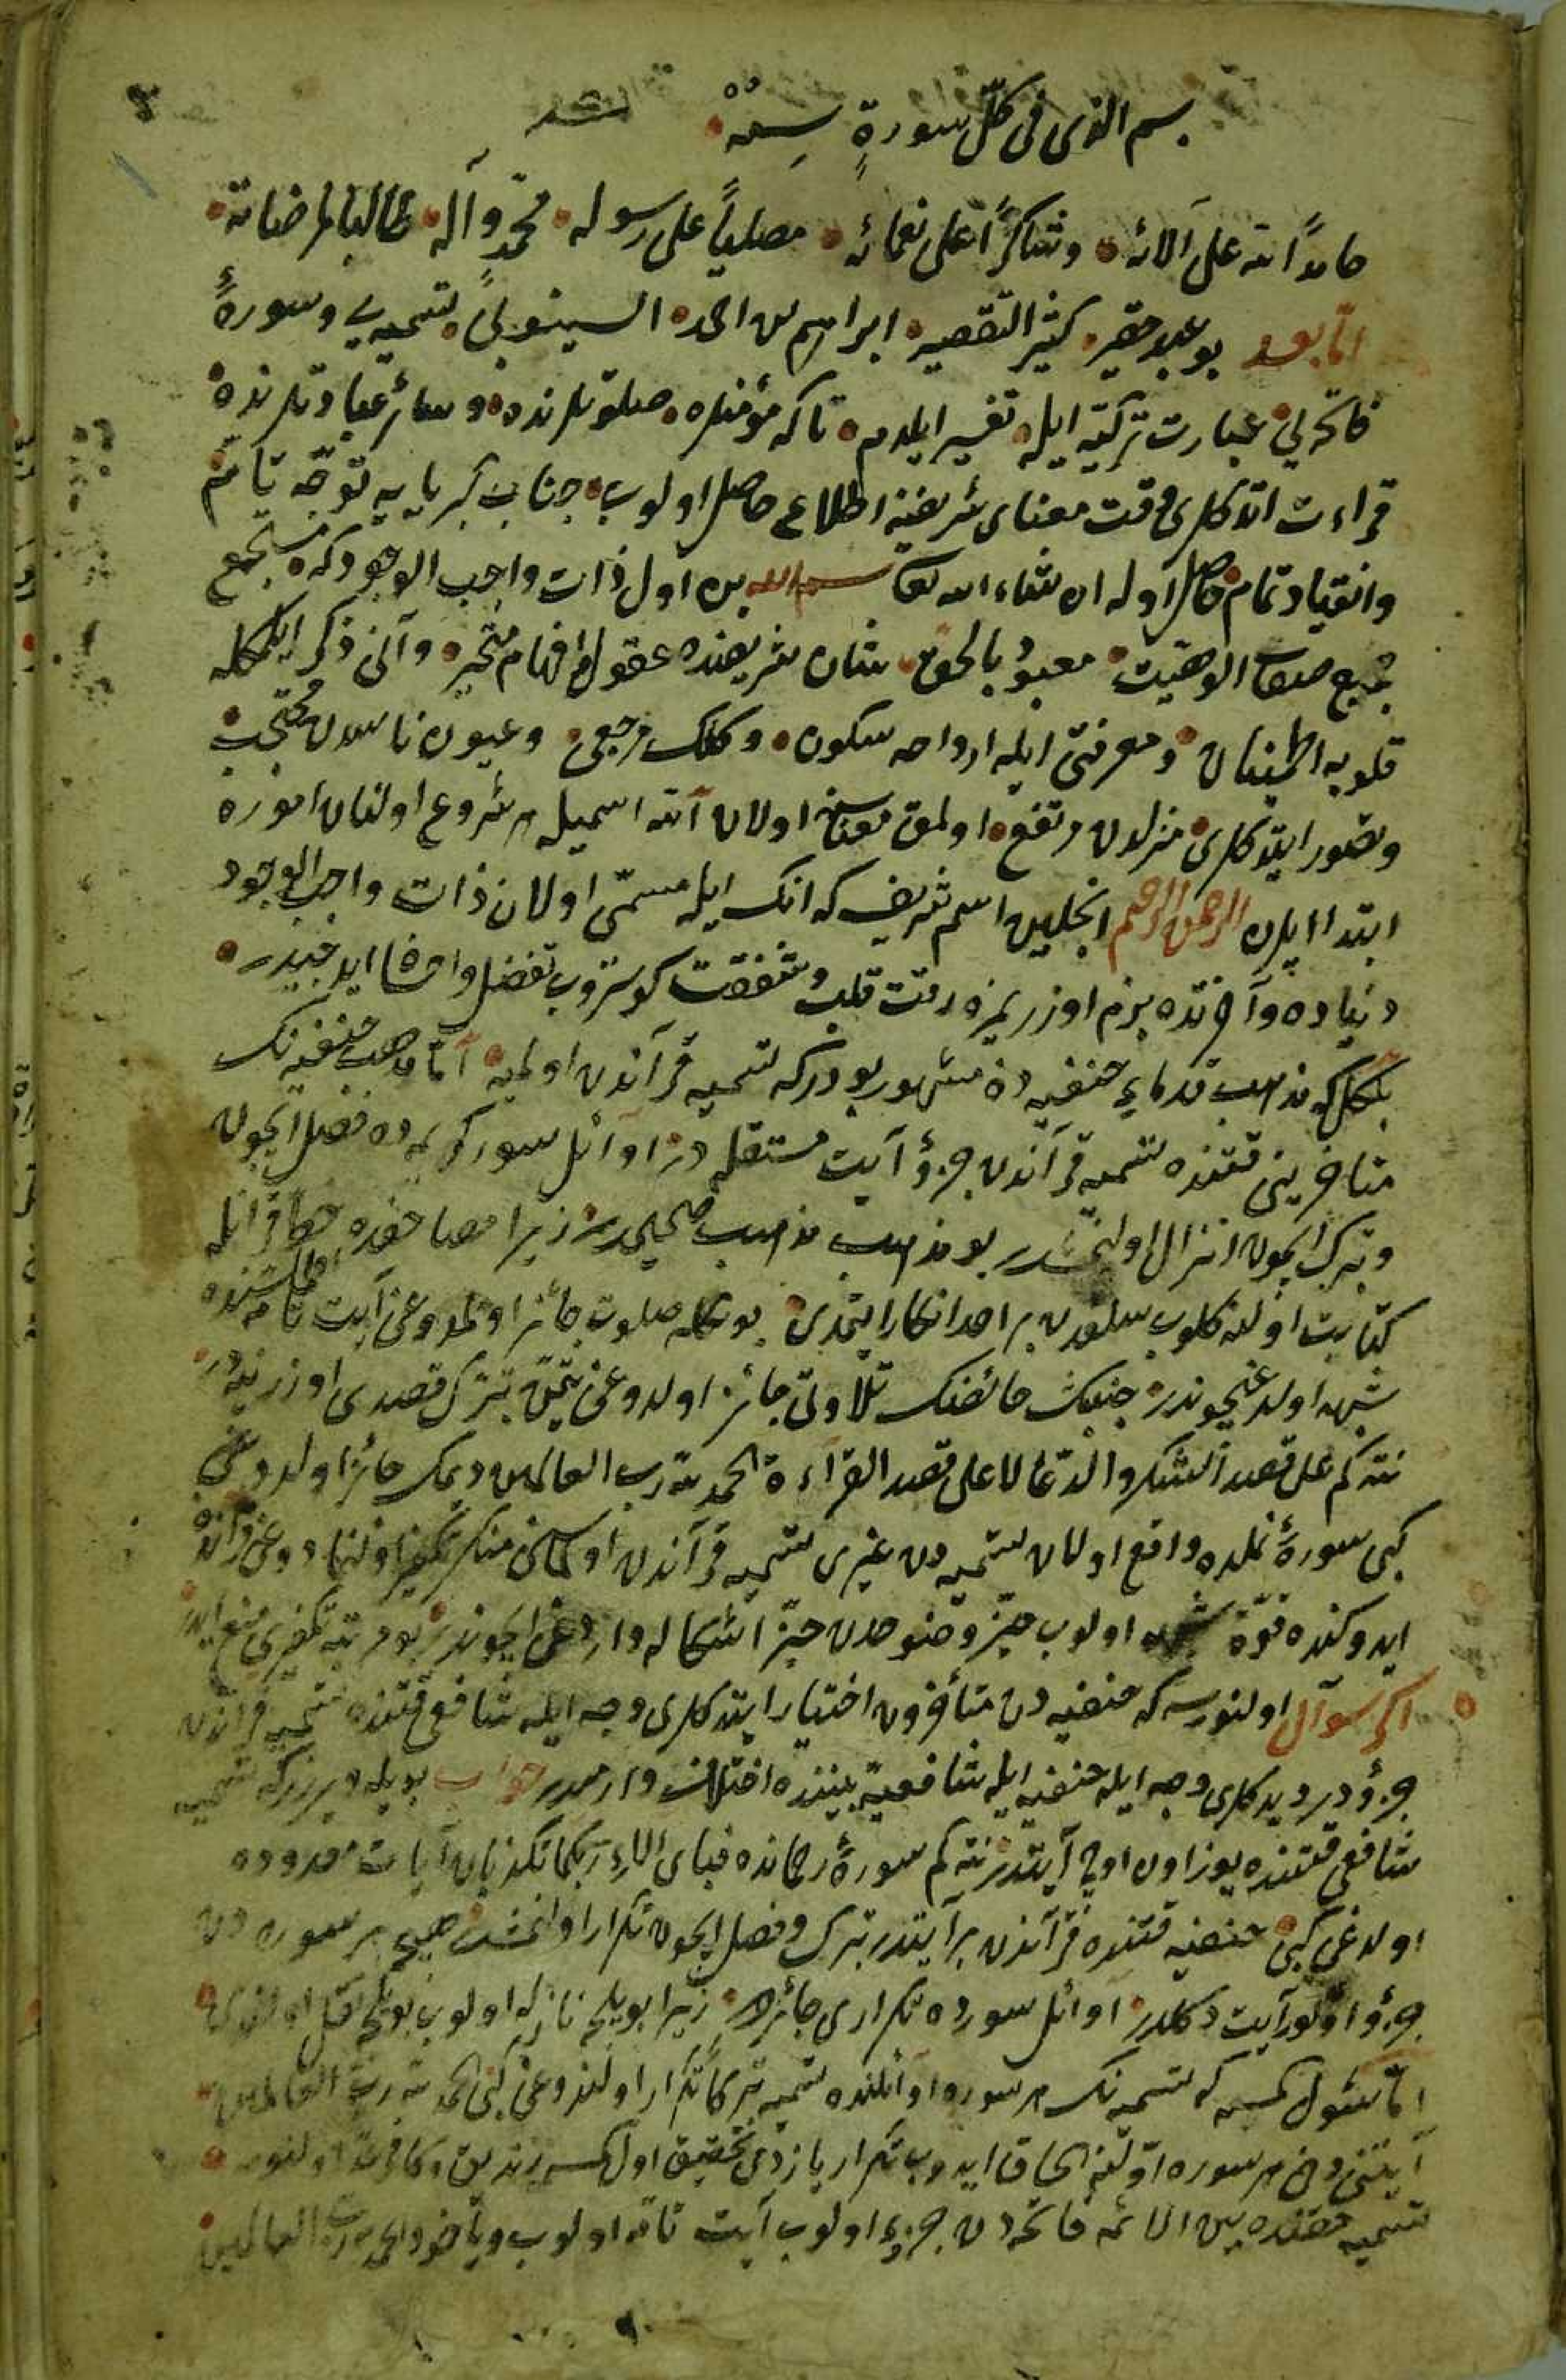 بسم الذى فى كلّ سورةٍ سِمَتُهُ
حامداً لله على آلائه وشاكراً على نعمائه مصلياً على رسوله محمّدٍ وآله طالبا لمرضاته
امّا بعد بو عبد حقير كثير التقصير ابراهيم بن احمد السينوبى تسميه يى وسورهٔ
فاتحه يى عبارت تركيّه ايله تفسير ايلدم تا كه مؤمنلره صلوتلرنده وسائر عبادتلرنده
قراءت اتدكلرى وقت معناى شريفنه اطلاع حاصل اولوب جناب كبريايه توجّه تامّ
وانقياد تمام حاصل اوله ان شاء الله تعا بسم الله بن اول ذات واجب الوجود كه مستجمع
جميع صفات الوهيّت معبودٌ بالحق شان شريفنده عقول وافهام متحيّر وآنى ذكر ايتمكله
قلوبه اطمينان ومعرفتى ايله ارواحه سكون وكلك مرجعى وعيون ناسدن محتجب
وتصور ايتدكلرى منزلدن مرتفع اولمق معناسنه اولان الله اسميله هر شروع اولنان اموره
ابتدا ايلرن الرحمن الرحيم انجلين اسم شريف كه انك ايله مسمّى اولان ذات واجب الوجود
دنياده وآخرتده بزم اوزريمزه رقت قلب وشفقت كوستروب تفضل واحسان ايديجيدر
بلكل كه مذهب قدماء حنفيه ده مشهور بودركه تسميه قرآندن اولميه امّا مذهب حنفيه نك
متأخرينى قتنده تسميه قرآندن جزؤ آيت مستقله در اوائل سور كريمه ده فصل ايچون
وتبرك ايچون انزال اولنمشدر بو مذهب مذهب صحيحدر زيرا مصاحفده خط قرآنله
كتابت اولنه كلوب سلفدن بر احد انكار ايتمدى بونكله صلوت جائز اولمدوغى آيت تامه سنده
شبهه اولدغيچوندر جنبك حائضك تلاوتى جائز اولدوغى تيمّن تبرّك قصدى اوزرينه در
نته كم على قصد الشكر والدعا لا على قصد القراءة الحمد لله رب العالمين ديمك جائز اولدوغى
كبى سورهٔ نملده واقع اولان تسميه دن غيرى تسميه قرآندن اولماسنى منكر تكفير اولنمادوغى قرآنده
ايدوكنده قوّت شبهه اولوب حيّز وضوحدن حيّز اشكاله واردغى ايچوندر بو مرتبه تكفيرى منع ايدر
اكر سوآل اولنورسه كه حنفيه دن متأخرون اختيار ايتدكلرى وجه ايله شافعى قتنده تسميه قرآندن
جزؤدر ديدكلرى وجه ايله حنفيه ايله شافعيه بيننده اختلاف وارميدر جواب بويله ويررز كه تسميه
شافعى قتنده يوز اون اوچ آيتدر نته كم سورهٔ رحمانده فباى الاء ربكما تكذبان آيات معدوده
اولدغى كبى حنفيه قتنده قرآندن بر آيتدر تبرك وفصل ايچون تكرار اولنمشدر هيچ بر سوره دن
جزؤ اولور آيت دكلدر اوائل سورده تكرارى جائزدر زيرا بويلجه نازله اولوب بويلجه نقل اولندى
امّا شول كمسه كه تسميه نك هر سوره اوائلنده تسميه تبركا تكرار اولندوغى كبى الحمد لله رب العالمين
آيتنى دخى هر سوره اوّلنه الحاق ايدوب تكرار يازدى تحقيق اول كمسه زنديق وكافردر اولنور
تسميه حقنده بين الائمه فاتحه دن جزء اولوب آيت تامّه اولوب وياخود الحمد لله رب العالمين